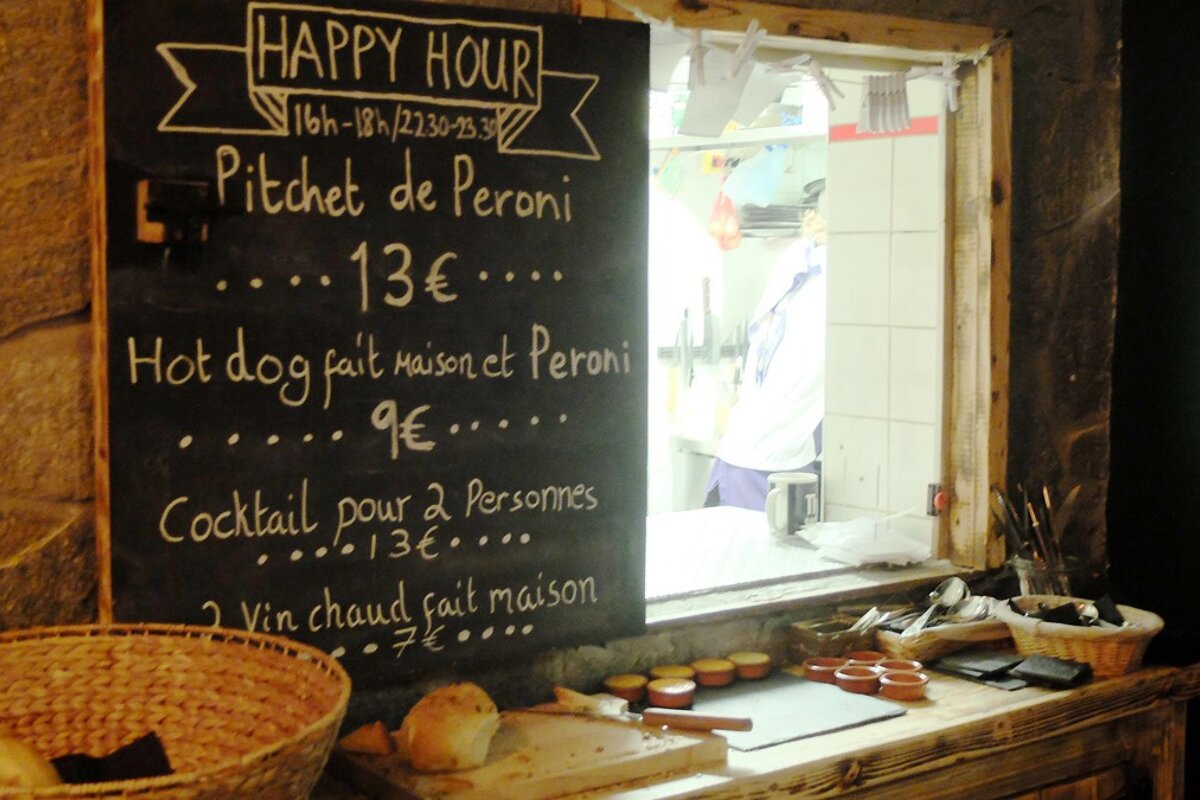 HAPPY HOUR
16h-18h/22.30-23.30
Pitchet de Peroni
....13€....
Hot dog fait maison et Peroni
.....9€.....
Cocktail pour 2 Personnes
....13€....
2 Vin chaud fait maison
..7€....